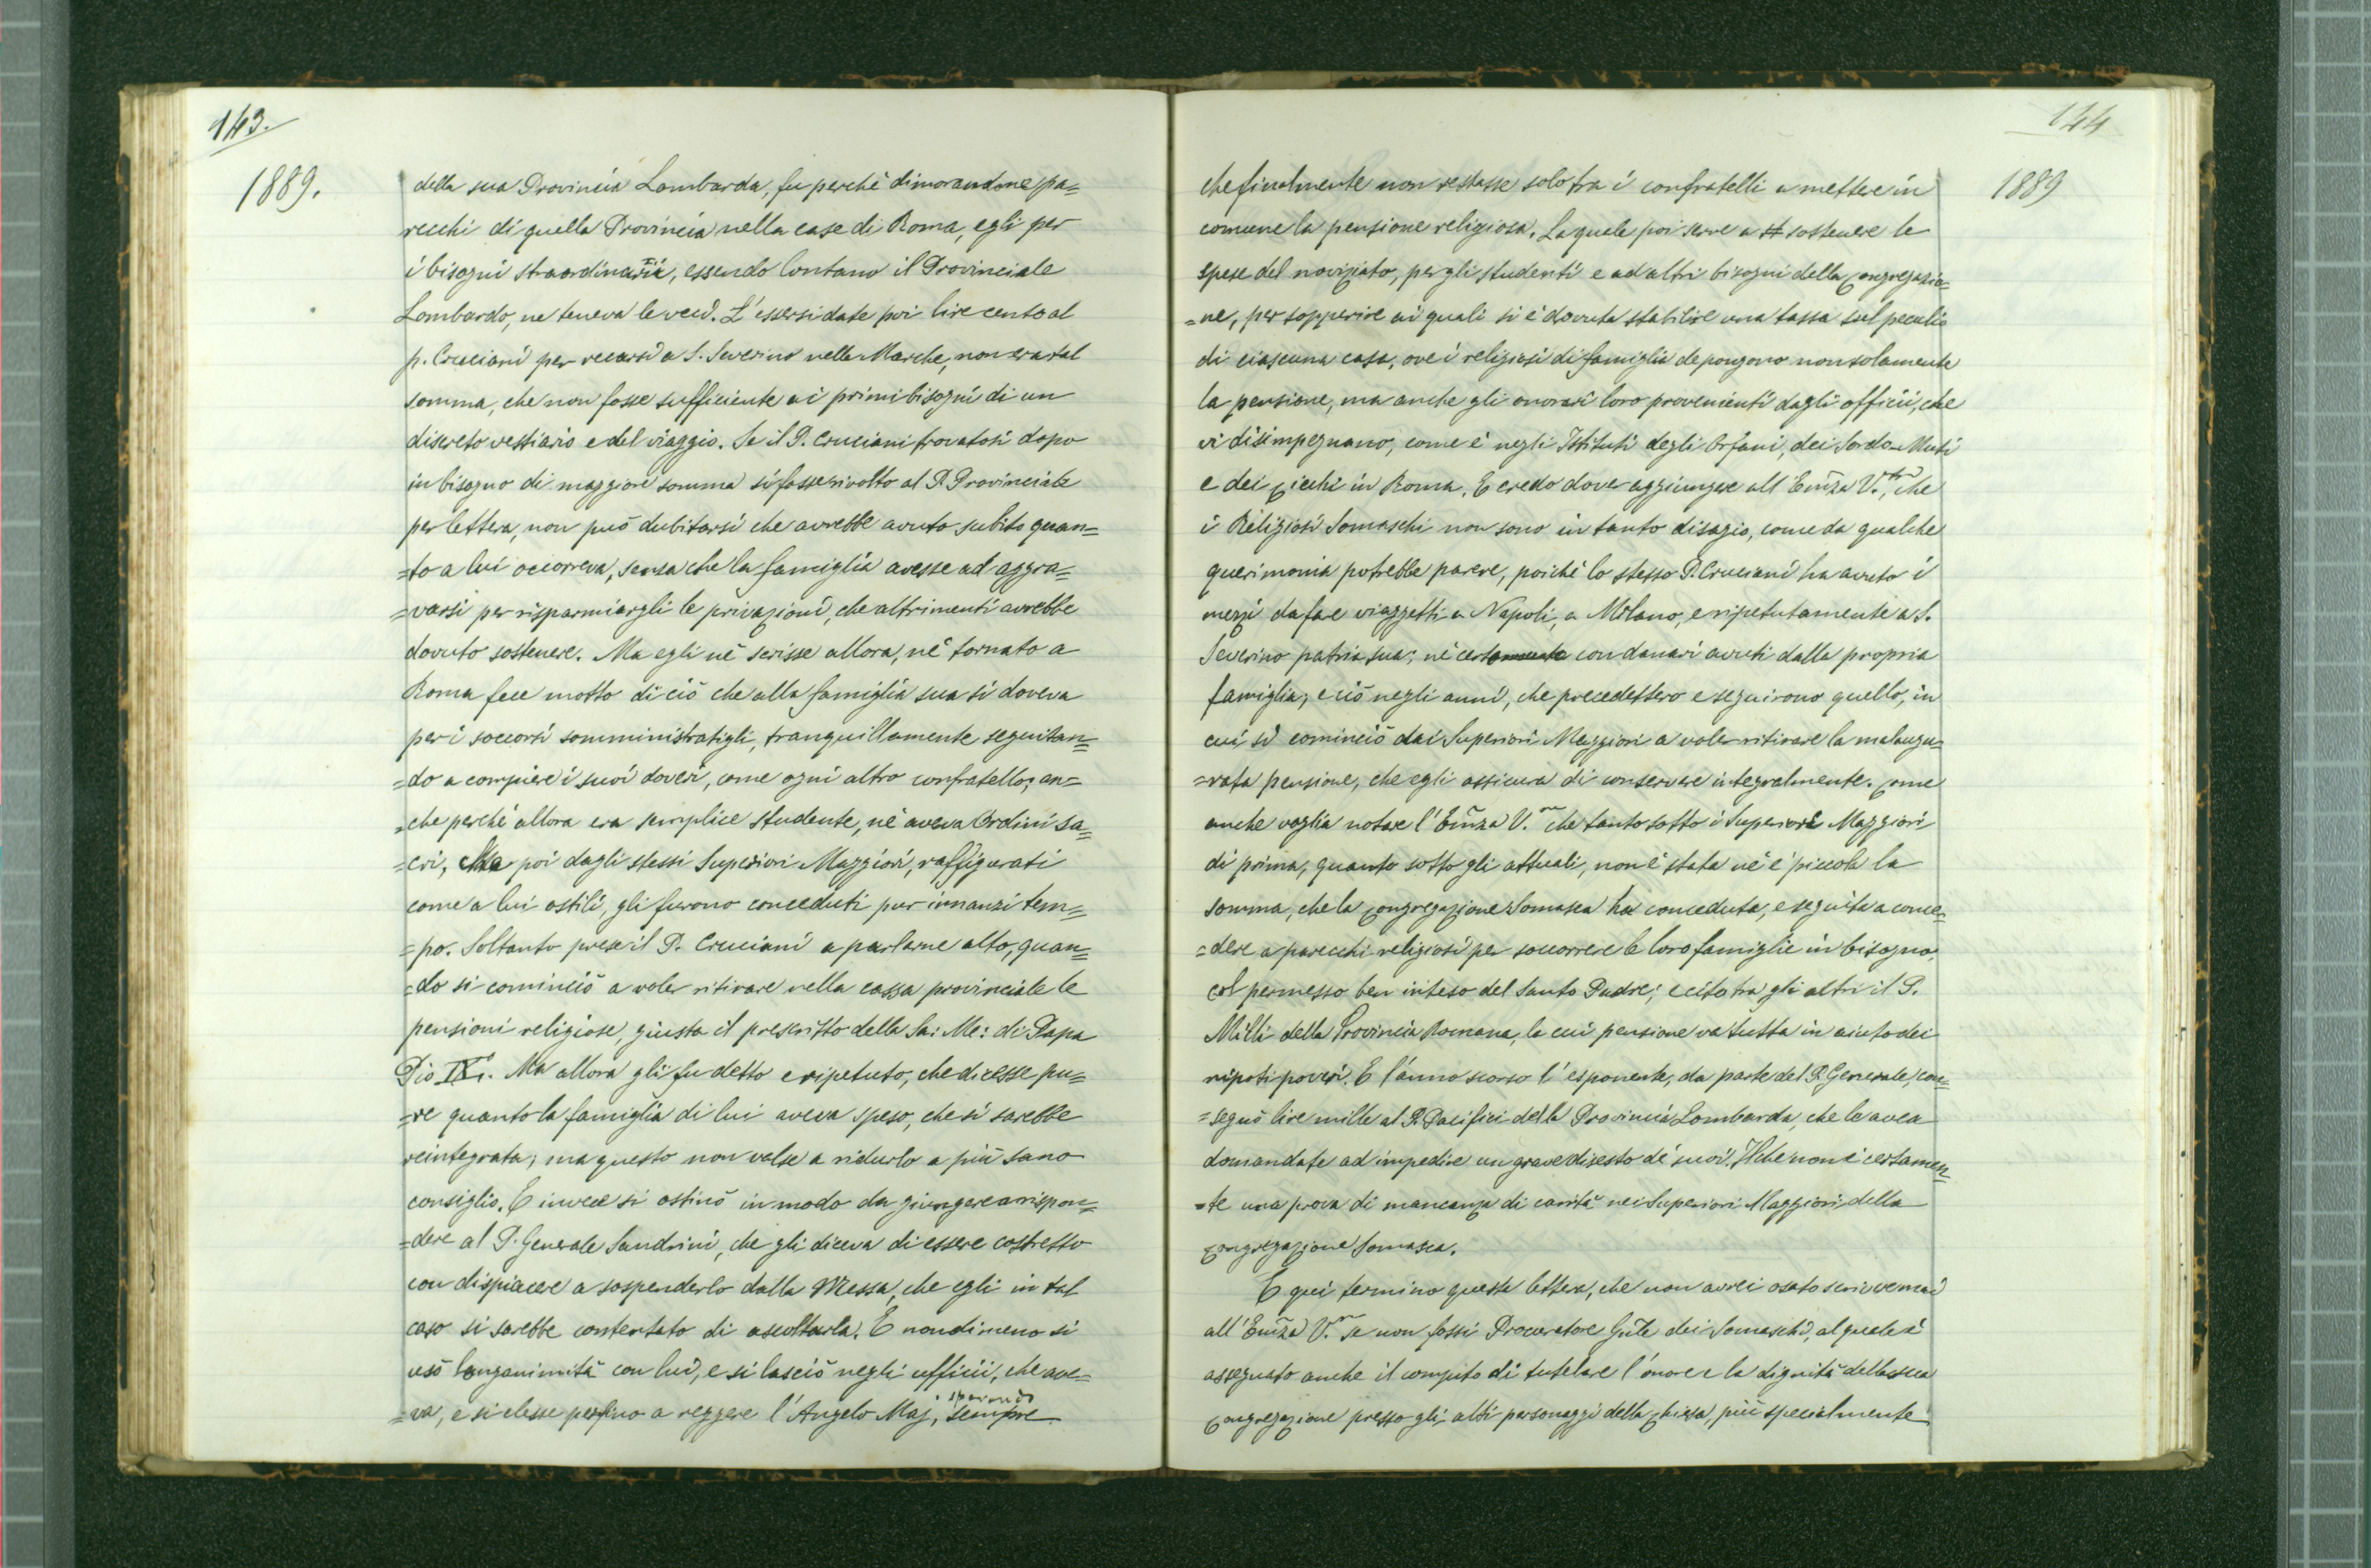 143.
1889.
della sua Provincia Lombarda, fu perchè dimorandone pa=
recchi di quella Provincia nella case di Roma, egli per
i bisogni straordinarii, essendo lontano il Provinciale
Lombardo, ne teneva le veci. L'essersi date poi lire cento al
p. Cruciani per recarsi a S. Severino nelle Marche, non era tal
somma, che non fosse sufficiente ai primi bisogni di un
discreto vestiario e del viaggio. Se il P. Cruciani trovatosi dopo
in bisogno di maggiore somma si fosse rivolto al P. Provinciale
per lettera, non può dubitarsi che avrebbe avuto subito quan=
=to a lui occorreva, senza che la famiglia avesse ad aggra=
=varsi per risparmiargli le privazioni, che altrimenti avrebbe
dovuto sostenere. Ma egli nè scrisse allora, nè tornato a
Roma fece motto di ciò che alla famiglia sua si doveva
per i soccorsi somministratigli, tranquillamente seguitan=
=do a compiere i suoi doveri, come ogni altro confratello; an=
=che perchè allora era semplice studente, nè aveva Ordini sa=
=cri, Ma poi dagli stessi Superiori Maggiori, raffigurati
come a lui ostili, gli furono conceduti pur innanzi tem=
=po. Soltanto prese il P. Cruciani a parlarne alto, quan=
=do si cominciò a voler ritirare nella cassa provinciale le
pensioni religiose, giusta il prescritto della Sa: Me: di Papa
Pio IXº. Ma allora gli fu detto e ripetuto, che dicesse pu=
=re quanto la famiglia di lui aveva speso, che si sarebbe
reintegrata; ma questo non valse a ridurlo a più sano
consiglio. E invece si ostinò in modo da giungere a rispon=
=dere al P. Generale Sandrini, che gli diceva di essere costretto
con dispiacere a sospenderlo dalla Messa, che egli in tal
caso si sarebbe contentato di ascoltarla. E nondimeno si
usò longanimità con lui, e si lasciò negli ufficii, che ave=
sperando
=va, e si elesse perfino a reggere l'Angelo Maj, sempre
144
1889
che finalmente non restasse solo tra i confratelli a mettere in
comune la pensione religiosa. La quale poi serve a sostenere le
spese del noviziato, per gli studenti e ad altri bisogni della Congregazio=
=ne, per sopperire ai quali si è dovuta stabilire una tassa sul peculio
di ciascuna casa, ove i religiosi di famiglia depongono non solamente
la pensione, ma anche gli onorari loro provenienti dagli officii, che
vi disimpegnano, come è negli Istituti degli Orfani, dei Sordo-Muti
e dei Ciechi in Roma. E credo dover aggiungere all'Em̃za V.ra, che
i Religiosi Somaschi non sono in tanto disagio, come da qualche
querimonia potrebbe parere, poichè lo stesso P. Cruciani ha avuto i
mezzi da fare viaggetti a Napoli, a Milano, e ripetutamente a S.
Severino patria sua; nè certamente con danari avuti dalla propria
famiglia; e ciò negli anni, che precedettero e seguirono quello, in
cui si cominciò dai Superiori Maggiori a voler ritirare la malaugu=
=rata pensione, che egli assicura di conservare integralmente. Come
anche voglia notare l'Em̃za V.ra che tanto sotto i Superiori Maggiori
di prima, quanto sotto gli attuali, non è stata nè è piccola la
somma, che la Congregazione Somasca ha conceduta, e seguita a conce=
=dere a parecchi religiosi per soccorrere le loro famiglie in bisogno,
col permesso ben inteso del Santo Padre; e cito tra gli altri il P.
Milli della Provincia Romana, la cui pensione va tutta in aiuto dei
nipoti poveri. E l'anno scorso l'esponente, da parte del P. Generale, con=
=segnò lire mille al P. Pacifici della Provincia Lombarda, che le avea
domandate ad impedire un grave disesto de' suoi. Il che non è certamen=
=te una prova di mancanza di carità nei Superiori Maggiori della
Congregazione Somasca.
E qui termino questa lettera, che non avrei osato scrivere mai
all'Em̃za V.ra se non fossi Procuratore Gñle dei Somaschi, al quale è
assegnato anche il compito di tutelare l'onore e la dignità della sua
Congregazione presso gli alti personaggi della Chiesa, più specialmente